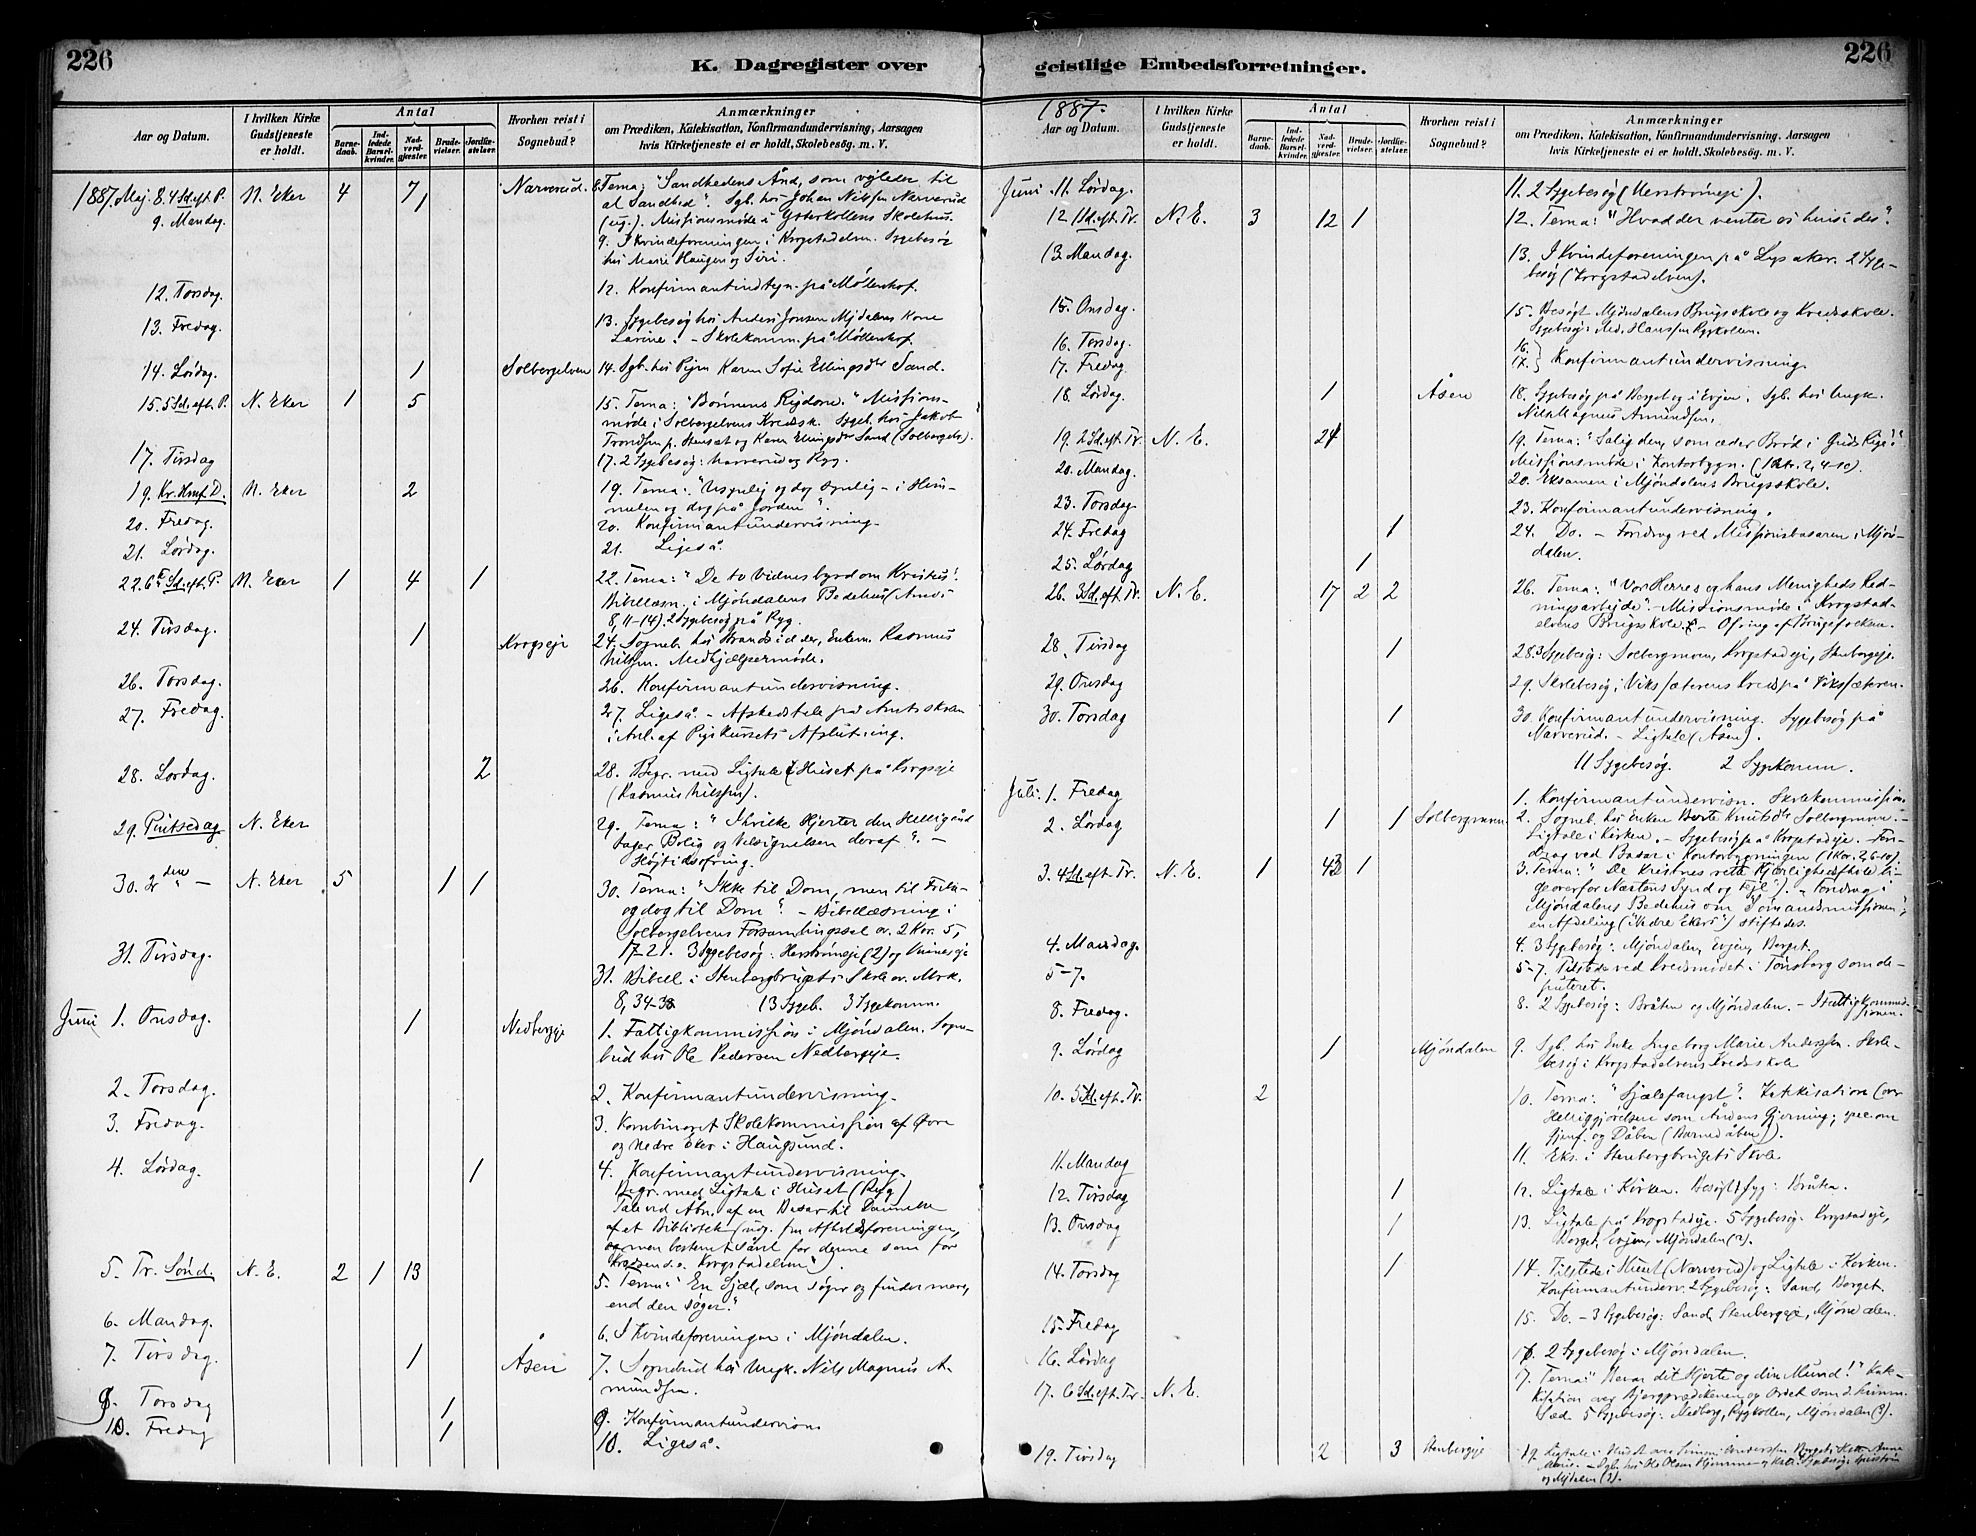 226
K. Dagregister over
Aar og Datum.
I hvilken Kirke Gudstjeneste er holdt.
Antal
Barnedaab.
Indledede Barselkvinder.
Nadverdgjester.
Brudevielser.
Jordfæstelser.
Hvorhen reist i Sognebud?
Anmærkninger
om Prædiken, Katekisation, Konfirmandundervisning, Aarsagen
hvis Kirketjeneste ei er holdt, Skolebesøg. m. V.
1887. Maj 8. 4 Sd. eft. P. N. Eker 4 7 1 Narverud. 8. Tema: "Sandhedens Ånd, som vejleder til
al Sandhed". Sgb. hos Johan Nilsen Narverud
9. Mandag. Missionsmøde i Ytterkollens Skolehus.
9. I Kvindeforeningen i Krogstadelven. Sygebesøg
hos Marie Haugen og Siri.
12. Torsdag. 12. Konfirmantindtegn. på Møllenhof.
13. Fredag. 13. Sygebesøg hos Anders Jonsen Mjdalens Kone
Lavine. - Skolekomm. på Møllenhof.
14. Lørdag. 1 Solbergelven 14. Sgb. hos Pigen Karen Sofie Ellingsdtr Sand.
15. 5 Sd. eft. P. N. Eker 1 5 15. Tema: "Bønnens Rigdom." Missions-
møde i Solbergelvens Kredsk. Sygeb. hos Jakob
Trondsen p. Stenset og Karen Ellingsdtr Sand (Solbergelv).
17. Tirsdag 17. 2 Sygebesøg: Narverud og Ryg.
19. Kr. Hmf. D. N. Eker 2 19. Tema: "Usynlig og dog synlig - i Him-
melen og dog på Jorden".
20. Fredag. 20. Konfirmantundervisning.
21. Lørdag. 21. Ligeså.
22. 6te Sd. eft. P. N. Eker 1 4 1 22. Tema: "De to Vidnesbyrd om Kristus".
Bibellæsn. i Mjøndalens Bedehus
8, 11-14). 2 Sygebesøg på Ryg.
24. Tirsdag. 1 Krogseje 24. Sogneb. hos Enkem. Rasmus
Nilsen. Medhjælpermøde.
26. Torsdag. 26. Konfirmantundervisning.
27. Fredag. 27. Ligeså. - Afskedstale på Amtsskolen
i Anl. af Pigekursets Afslutning.
28. Lørdag. 2 28. Begr. med Ligtale i Huset på Krogseje
(Rasmus Nilssen).
29. Pintsedag N. Eker 29. Tema: "I hvilke Hjerter den Helligånd
tager Bolig og Velsignelsen deraf". -
Højtidsofring.
30. 2den " - N. Eker 5 1 1 30. Tema: "Ikke til Dom, men til Frelse
og dog til Dom". - Bibellæsning i
Solbergelvens Forsamlingssal ov. 2 Kor. 5,
17-21. 3 Sygebesøg: Herstrømseje (2) og
31. Tirsdag. 31. Bibell. i Stenbergbrugets Skole ov. Mrk.
8, 34-38 13 Sygeb. 3 Sygekomm.
Juni 1. Onsdag. 1 Nedbergeje 1. Fattigkommission i Mjøndalen. Sogne-
bud hos Ole Pedersen Nedbergeje.
2. Torsdag. 2. Konfirmantundervisning.
3. Fredag. 3. Kombineret Skolekommission af Øvre
og Nedre Eker i Haugsund.
4. Lørdag. 1 4. Konfirmantundervisning.
Begr. med Ligtale i Huset (Ryg)
Tale ved Åbn. af en Basar til Dannelse
af et Bibliotek (udg. fra Afholdsforeningen,
men bestemt såvel for denne som for
Kredsen s. s. Krogstadelven").
5. Tr. Sønd. N. E. 2 1 13 5. Tema: "En Sjæl, som søger og finder mere,
end den søger."
6. Mandag. 6. I Kvindeforeningen i Mjøndalen.
7. Tirsdag. 1 Åsen 7. Sognebud hos Ungk. Nils Magnus A-
mundsen.
9. Torsdag 1 9. Konfirmantundervisn
10. Fredag 1 10. Ligeså.
226
geistlige Embedsforretninger.
1887.
Aar og Datum.
I hvilken Kirke Gudstjeneste er holdt.
Antal
Barnedaab.
Indledede Barselkvinder.
Nadverdgjester.
Brudevielser.
Jordfæstelser.
Hvorhen reist i Sognebud?
Anmærkninger
om Prædiken, Katekisation, Konfirmandundervisning, Aarsagen
hvis Kirketjeneste ei er holdt, Skolebesøg. m. V.
Juni. 11. Lørdag. 11. 2 Sygebesøg (Herstrømseje).
12. 1 Sd. eft. Tr. N. E. 3 12 1 12. Tema: "Hvad der venter os hinsides".
13. Mandag. 13. I Kvindeforeningen på Lysaker. 2 Syge-
besøg (Krogstadelven).
15. Onsdag. 15. Besøgt Mjøndalens Brugsskole og Kredsskole.
Sygebesøg: Hanssen Rygkollen.
16. Torsdag. 16.
17. Fredag 17. } Konfirmantundervisning.
18. Lørdag. 1 Åsen 18. Sygebesøg på Berget og i Evjen. Sgb. hos Ungk.
Nils Magnus Amundsen.
19. 2 Sd. eft. Tr. N. E. 24 19. Tema: "Salig den, som æder Brød i Guds Rige!"
Missionsmøde i Kontorbygn. (1 Kor. 2, 4-10).
20. Mandag. 20. Eksamen i Mjøndalens Brugsskole.
23. Torsdag 23. Konfirmantundervisning.
24. Fredag 1 24. Do. - Foredrag ved Missionsbasaren i Mjøn-
dalen.
25. Lørdag 1
26. 3 Sd. eft. Tr. N. E. 17 2 2 26. Tema: "Vor Herres og hans Menigheds Red-
ningsarbejde". Missionsmøde i Krogstad-
elvens Brugsskole. - Ofring af
28. Tirsdag 1 28. 3 Sygebesøg: Solbergmoen, Krogstadeje, Stenbergeje.
29. Onsdag 29. Skolebesøg i Viksæterens Kreds på Viksæteren.
30. Torsdag 1 30. Konfirmantundervisning. Sygebesøg på
Narverud. - Ligtale (Åsen).
11 Sygebesøg. 2 Sygekomm.
Juli. 1. Fredag 1. Konfirmantundervisn. Skolekommission.
2. Lørdag 1 1 Solbergmoen 2. Sogneb. hos Enken Berte Knutsdtr Solbergmoen. -
Ligtale i Kirken. - Sygebesøg på Krogstadeje. - Fore-
drag ved Basar i Kontorbygningen (1 Kor. 2, 6-10).
3. 4 Sd. eft. Tr. N. E. 1 43 1 3. Tema: "De Kristnes rette Kjærlighedsforhold li-
geoverfor Næstens Synd og Fejl". - Foredrag i
Mjøndalens Bedehus om Sømandsmissionen;
en Afdeling ("Nedre Eker") stiftedes.
4. Mandag. 4. 3 Sygebesøg: Mjøndalen, Evjen, Berget.
5-7. 5-7. Tilstede ved Kredsmødet i Tønsberg som de-
puteret.
8. Fredag. 8. 2 Sygebesøg: Bråten og Mjøndalen. - Fattigkommis-
sionen.
9. Lørdag 1 Mjøndalen 9. Sgb. hos Enke Ingeborg Marie Anderssen. Skole-
besøg i Krogstadelvens Kredsskole
10. 5 Sd. eft. Tr. 2 10. Tema: "Sjælefangst". Katekisation (over
Helliggjørelsen som Åndens Gjerning; spec. om
Gjenf. og Dåben (Barnedåben)).
11. Mandag 11. Eks. i Stenbergbrugets Skole
12. Tirsdag 1 12. Ligtale i Kirken. Besøgt Syg: Bråten.
13. Onsdag 1 13. Ligtale på Krogstadeje. 5 Sygebesøg: Krogstadeje,
Berget, Evjen, Mjøndalen (2).
14. Torsdag 1 14. Tilstede i Huset (Narverud) og Ligtale i Kirken.
Konfirmantunderv. 2 Sygebesøg: Sand, Berget.
15. Fredag 15. Do. - 3 Sygebesøg: Sand, Stenbergeje, Mjøndalen.
16. Lørdag 16. 2 Sygebesøg i Mjøndalen.
17. 6 Sd. eft. Tr. N. E. 17. Tema: "Bevar dit Hjerte og din Mund!" Kate-
kisation over Bjergprædikenen og Ordet som d. himm.
Sæd. 5 Sygebesøg: Nedberg, Rygkollen, Mjøndalen (3).
19. Tirsdag 2 3 Stenbergeje 19. Ligtale i Huset over Simon Anderssen Berget,
- Sgb. hos Ole Olsen Hjemmen
og Mjdalen (2).